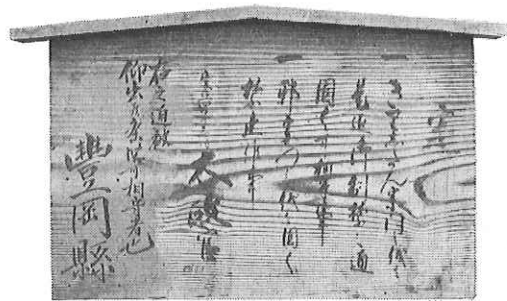 定
一 きりしたん宗門之儀ハ
是迄御制禁之通
固く可相守事
一 邪宗門之儀ハ固く
禁止候事
太政官
右之通被
仰出候条堅可相守者也
豐岡縣